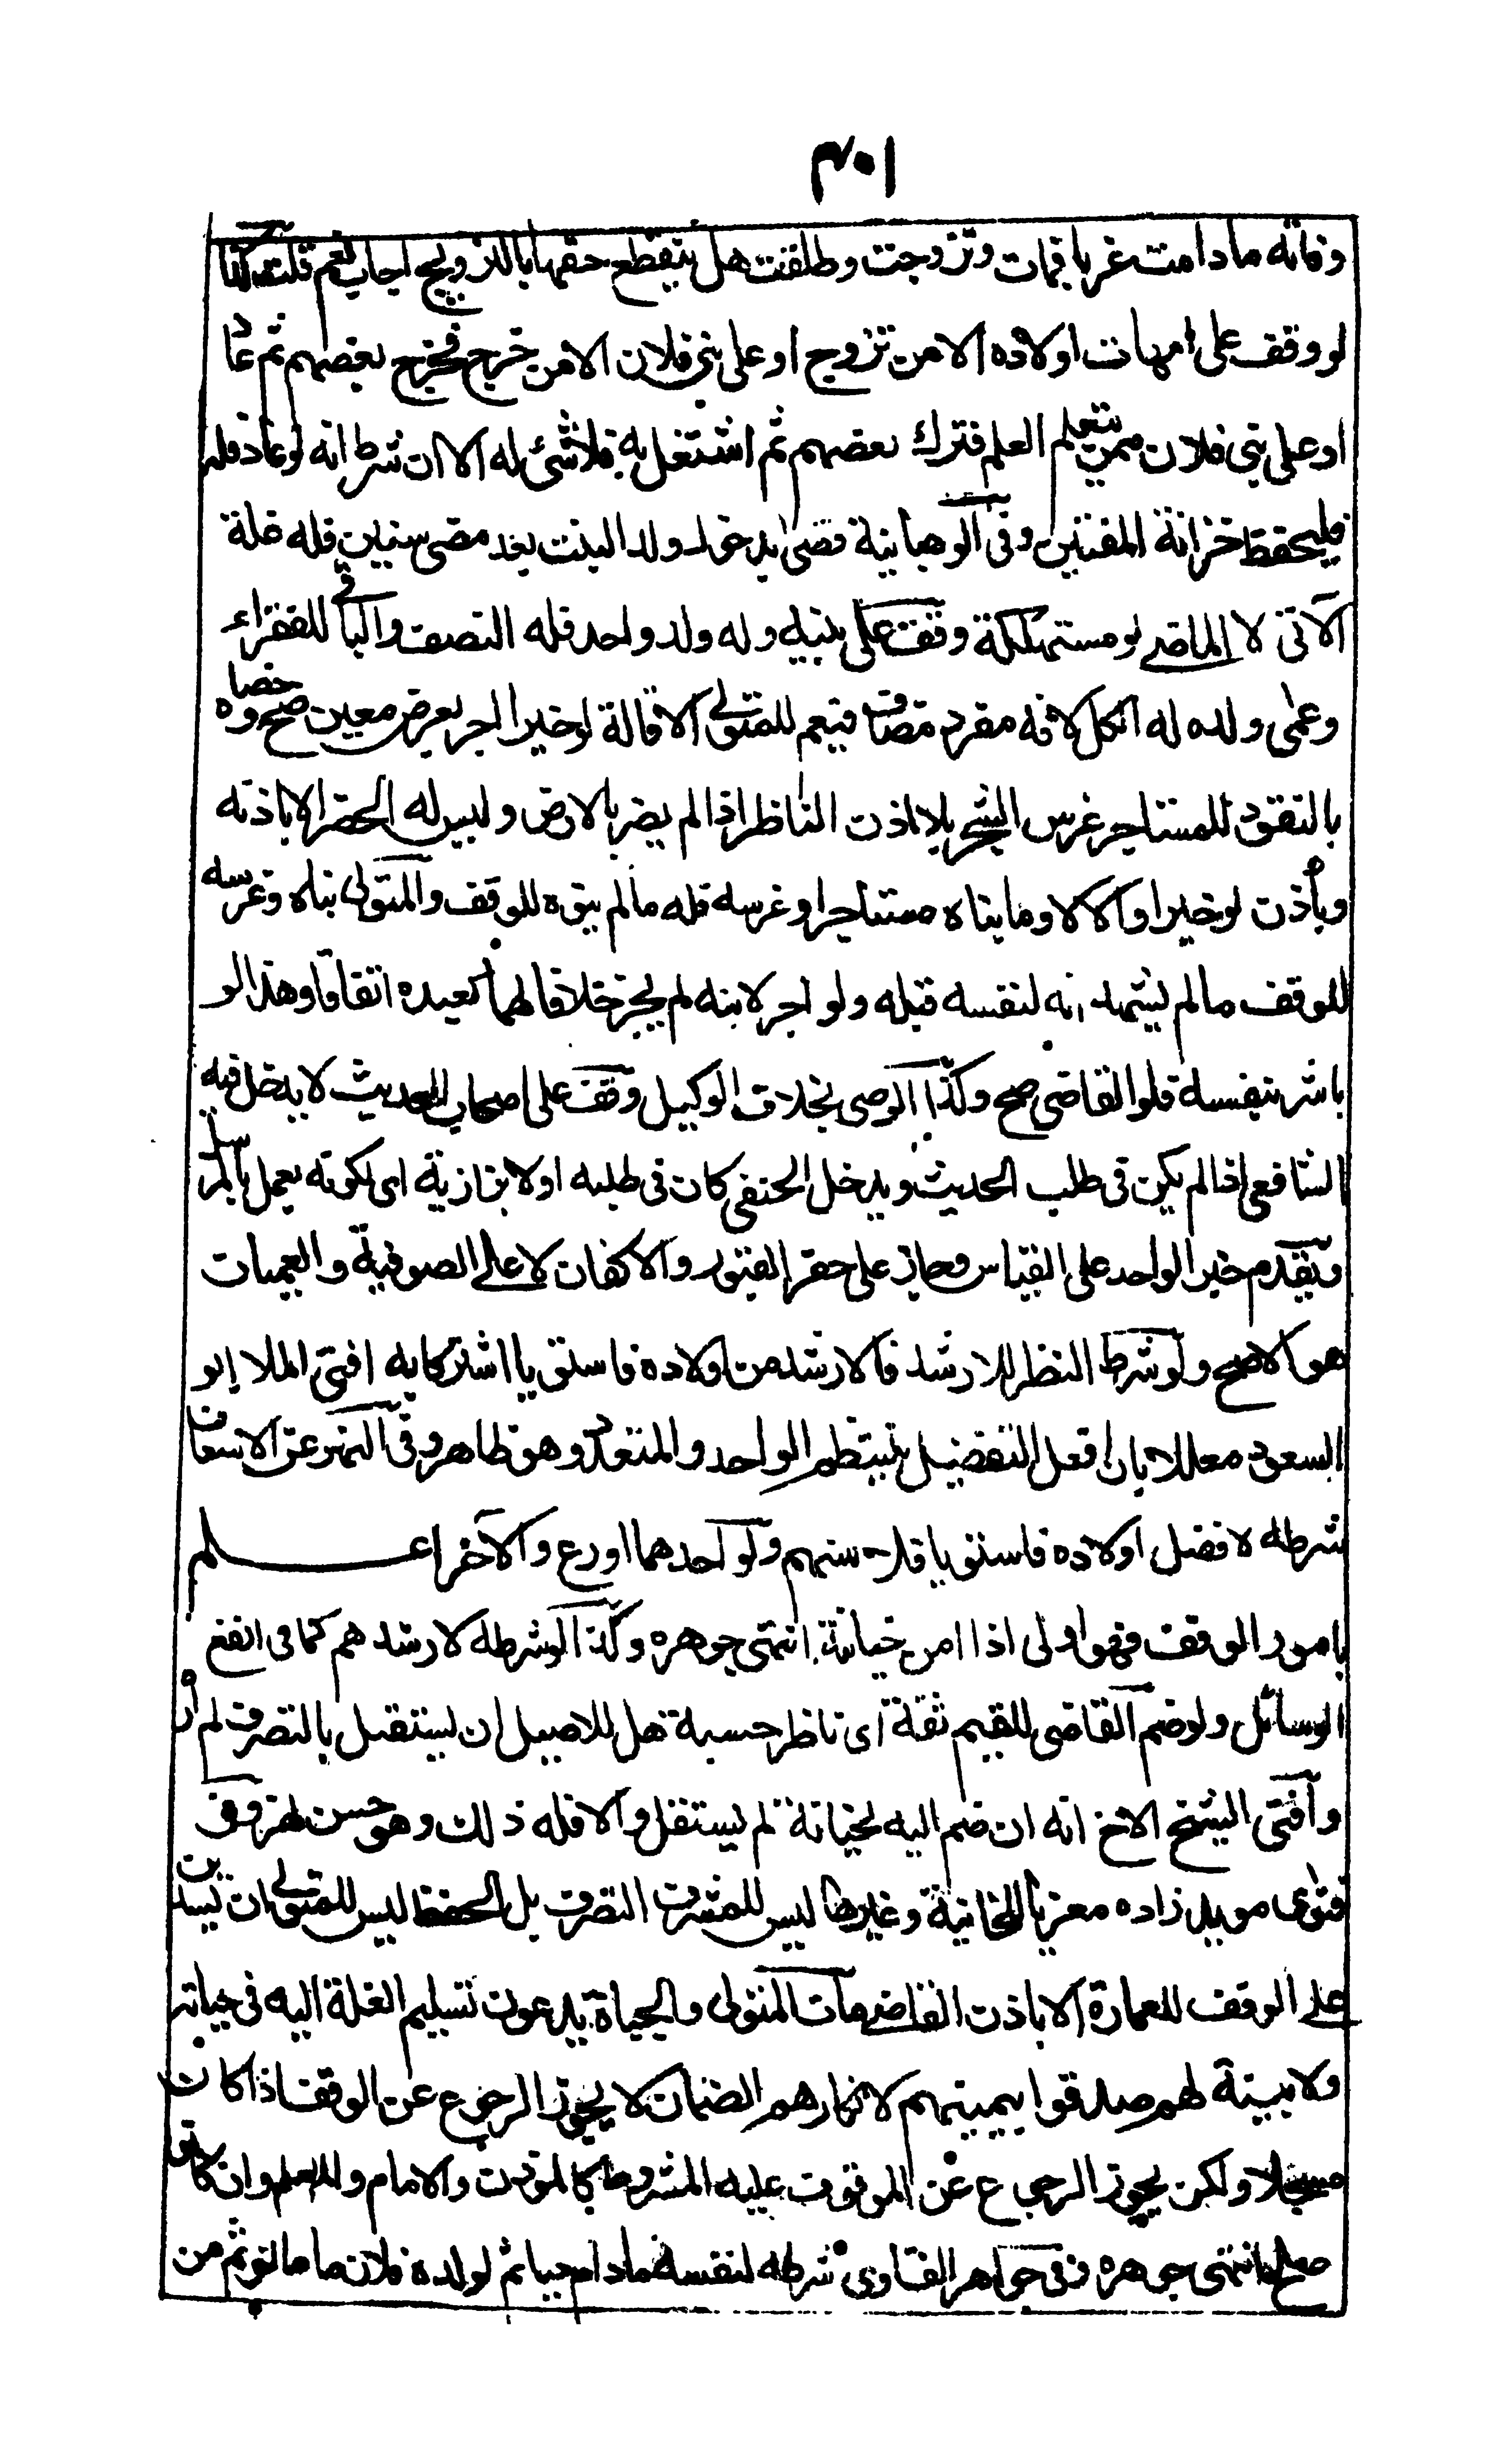 ٣٠١
وفاته مادامت عزبا فمات وتزوجت وطلقت هل ينقطع حقها بالتزويج اجاب نعم قلت وكذا
لو وقف على امهات اولاده الا من تزوج او على بنى فلان الا من خرج فخرج بعضهم ثم عاد
او على بنى فلان ممن يتعلم العلم فترك بعضهم ثم اشتغل به فلا شئ له الا ان شرط انه لو عاد فله
فليحفظ خزانة المفتين وفى الوهبانية قضى بدخول ولد البنت بعد مضى سنين فله غلة
الآتى لا الماضى لو مستهلكة وقف على بنيه وله ولد واحد فله النصف والباقى للفقراء
وعلى ولده له الكل لانه مفرد مضاف فيعم للمتولى الاقالة لو خيرا اجر بعرض معين صح وخصاه
بالنقود للمستاجر غرس الشجر بلا اذن الناظر اذا لم يضر بالارض وليس له الحفر الا باذنه
وبأذن لو خيرا والا لا وما بناه مستاجرا وغرسه فله مالم ينوه للوقف والمتولى بناه وغرسه
للوقف مالم يشهد انه لنفسه قبله ولو اجر لابنه لم يجز خلافا لهما كعبده اتفاقا وهذا لو
باشر بنفسه فلو القاضى صح وكذا الوصى بخلاف الوكيل وقف على اصحاب الحديث لا يدخل فيه
الشافعى اذا لم يكن فى طلب الحديث ويدخل الحنفى كان فى طلبه اولا بزازية اى لكونه يعمل بالمرسل
ويقدم خبر الواحد على القياس وجاز على حفر القبور والاكفان لا على الصوفية والعميان
هو الاصح ولو شرط النظر للارشد فالارشد من اولاده فاستويا اشتركا به افتى الملا ابو
السعود معللا بان افعل التفضيل ينتظم الواحد والمتعدد وهو ظاهر وفى النهر عن الاسعاف
شرطه لافضل اولاده فاستويا فلاسنهم ولو احدهما اورع والآخر اعلم
بامور الوقف فهو اولى اذا امن خيانته انتهى جوهره وكذا لو شرطه لارشدهم كما فى انفع
الوسائل ولو ضم القاضى للقيم ثقة اى ناظر حسبة هل للاصيل ان يستقل بالتصرف لم أره
وأفتى الشيخ الاخ انه ان ضم اليه لخيانة لم يستقل والا فله ذلك وهو حسن نهر وفى
فتوى مويد زاده معزيا للخانية وغيرها ليس للمشرف التصرف بل الحفظ ليس للمتولى ان يستدين
على الوقف للعمارة الا باذن القاضى مات المتولى والجباة يدعون تسليم الغلة اليه فى حياته
ولا بينة لهم صدقوا بيمينهم لانكارهم الضمان لا يجوز الرجوع عن الوقف اذا كان
مسجلا ولكن يجوز الرجوع عن الموقوف عليه المشروط كالموذن والامام والمعلم وان كانوا
اصلح انتهى جوهره وفى جواهر الفتاوى شرطه لنفسه مادام حيا ثم لولده فلان ما عاش ثم من